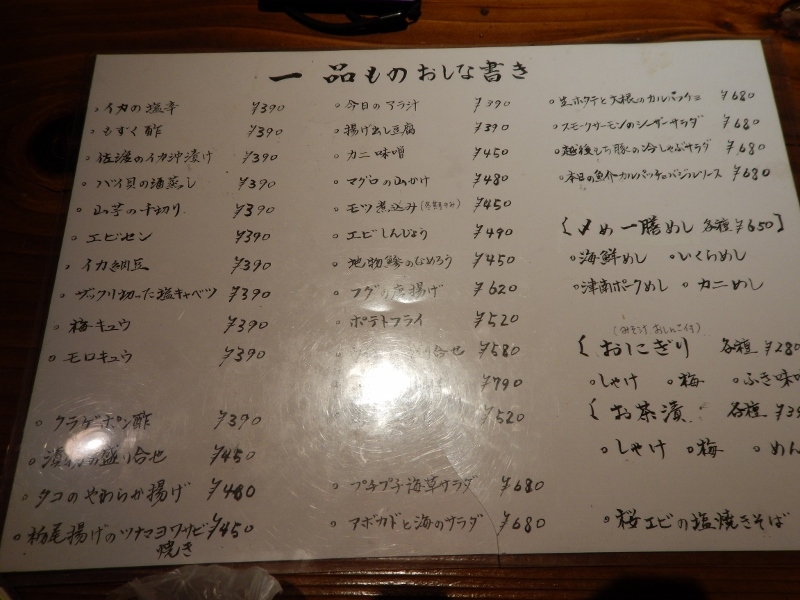 一品ものおしな書き
イカの塩辛 ¥390
もずく酢 ¥390
佐渡のイカ沖漬け ¥390
バイ貝の酒蒸し ¥390
山芋の千切り ¥390
エビセン ¥390
イカ納豆 ¥390
ザックリ切った塩キャベツ ¥390
梅キュウ ¥390
モロキュウ ¥390
クラゲポン酢 ¥390
盛り合せ ¥450
タコのやわらか揚げ ¥480
栃尾揚げのツナマヨワサビ焼き ¥450
今日のアラ汁 ¥390
揚げ出し豆腐 ¥390
カニ味噌 ¥450
マグロの山かけ ¥480
モツ煮込み ¥450
エビしんじょう ¥490
地物鯵のなめろう ¥450
フグの唐揚げ ¥620
ポテトフライ ¥520
合せ ¥580
¥790
¥520
プチプチ海草サラダ ¥680
アボカドと海のサラダ ¥680
生ホタテと大根のカルパッチョ ¥680
スモークサーモンのシーザーサラダ ¥680
越後もち豚の冷しゃぶサラダ ¥680
本日の魚介カルパッチョバジルソース ¥680
〆め一膳めし 各種¥650
海鮮めし いくらめし
津南ポークめし カニめし
(みそ汁 おしんこ付)
おにぎり 各種 ¥280
しゃけ 梅 ふき味
お茶漬 各種 ¥39
しゃけ 梅 めん
桜エビの塩焼きそば